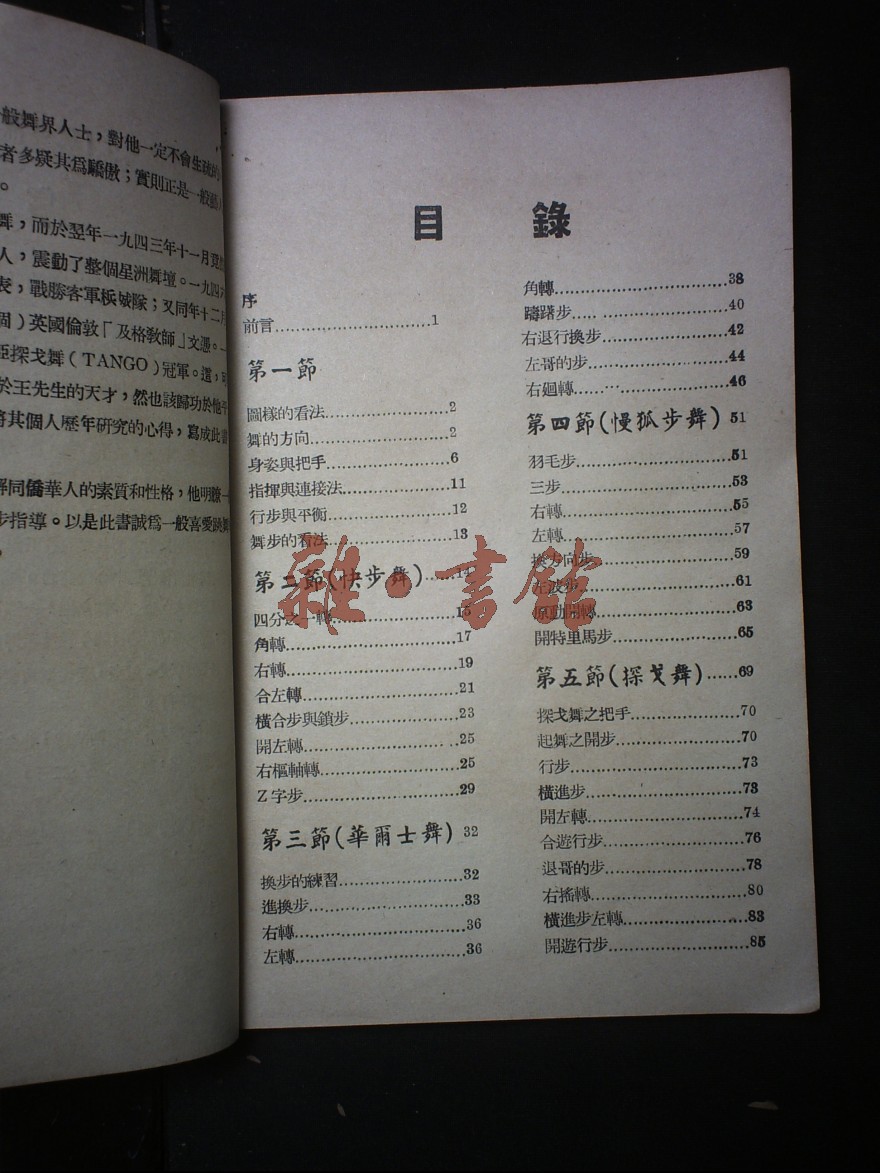 般舞界人士，對他一定不會生疏的
者多疑其爲驕傲；實則正是一般
。
舞，而於翌年一九四三年十一月竟
人，震動了整個星洲舞壇。一九四
表，戰勝客軍檳城隊；又同年十二月
英國倫敦「及格敎師」文憑。一
亞探戈舞（TANGO）冠軍。這，可
於王先生的天才，然也該歸功於他平
將其個人歷年研究的心得，寫成此書
解同僑華人的素質和性格，他明瞭一
步指導。以是此書誠爲一般喜愛跳舞
。
目 錄
序
前言....................1
第一節
圖樣的看法....................2
舞的方向....................2
身姿與把手....................6
指揮與連接法....................11
行步與平衡....................12
舞步的看法....................13
第二節(快步舞)......14
四分之一轉....................15
角轉....................17
右轉....................19
合左轉....................21
橫合步與鎖步....................23
開左轉....................25
右樞軸轉....................25
Z字步....................29
第三節(華爾士舞) 32
換步的練習....................32
進換步....................33
右轉....................36
左轉....................36
角轉....................38
躊躇步....................40
右退行換步....................42
左哥的步....................44
右廻轉....................46
第四節(慢狐步舞) 51
羽毛步....................51
三步....................53
右轉....................55
左轉....................57
換方向步....................59
左波步....................61
原動開轉....................63
開特里馬步....................65
第五節(探戈舞)......69
探戈舞之把手....................70
起舞之開步....................70
行步....................73
橫進步....................73
開左轉....................74
合遊行步....................76
退哥的步....................78
右搖轉....................80
橫進步左轉....................83
開遊行步....................85
雜·書館